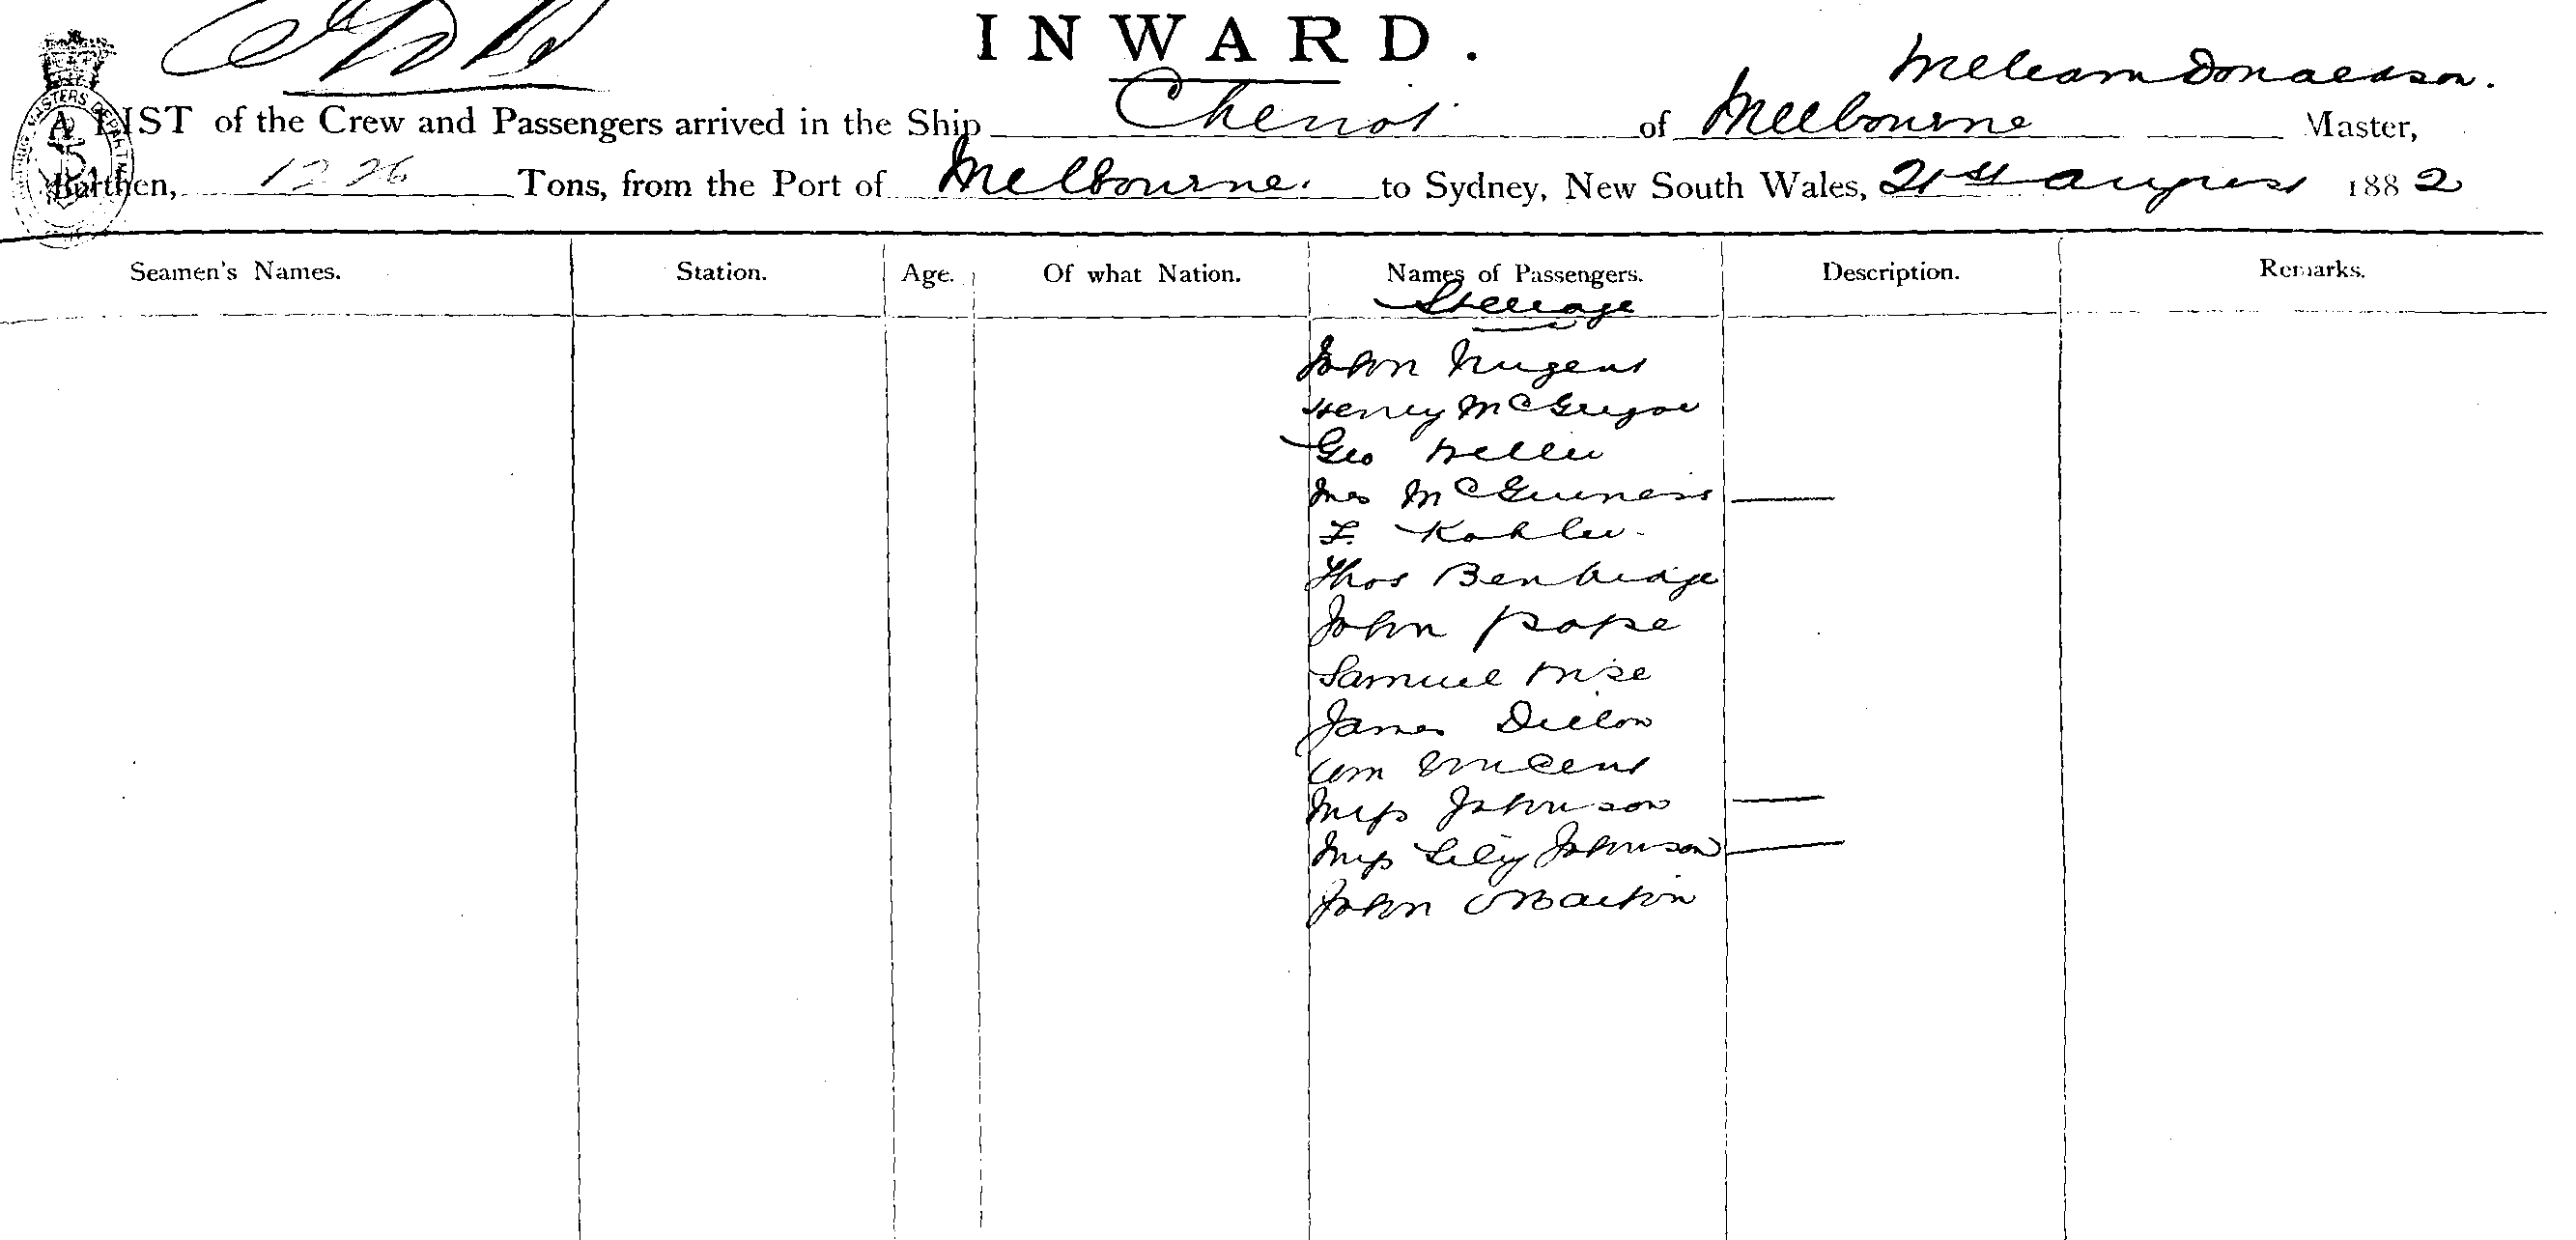 INWARD.
William Donaldson.
A LIST of the Crew and Passengers arrived in the Ship Cheviot of Melbourne Master,
Burthen, 1226 Tons, from the Port of Melbourne. to Sydney, New South Wales, 21st August 1882
Seamen's Names. Station. Age. Of what Nation. Names of Passengers. Description. Remarks.
Steerage
John Nugent
Henry McGregor
Geo Weller
Mrs McGuiness
F. Kohler
Thos Benbridge
John Pope
Samuel Wise
James Dillon
Wm Vincent
Miss Johnson
Miss Lily Johnson
John Martin